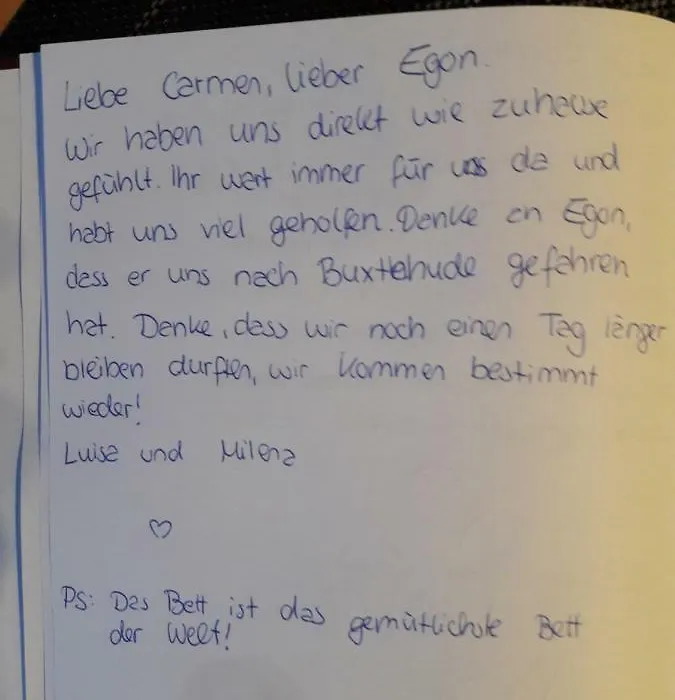 Liebe Carmen, lieber Egon.
Wir haben uns direkt wie zuhause
gefühlt. Ihr wart immer für uns da und
habt uns viel geholfen. Danke an Egon,
dass er uns nach Buxtehude gefahren
hat. Danke, dass wir noch einen Tag länger
bleiben durften, wir kommen bestimmt
wieder!
Luisa und Milena
♡
PS: Das Bett ist das gemütlichste Bett
der Welt!